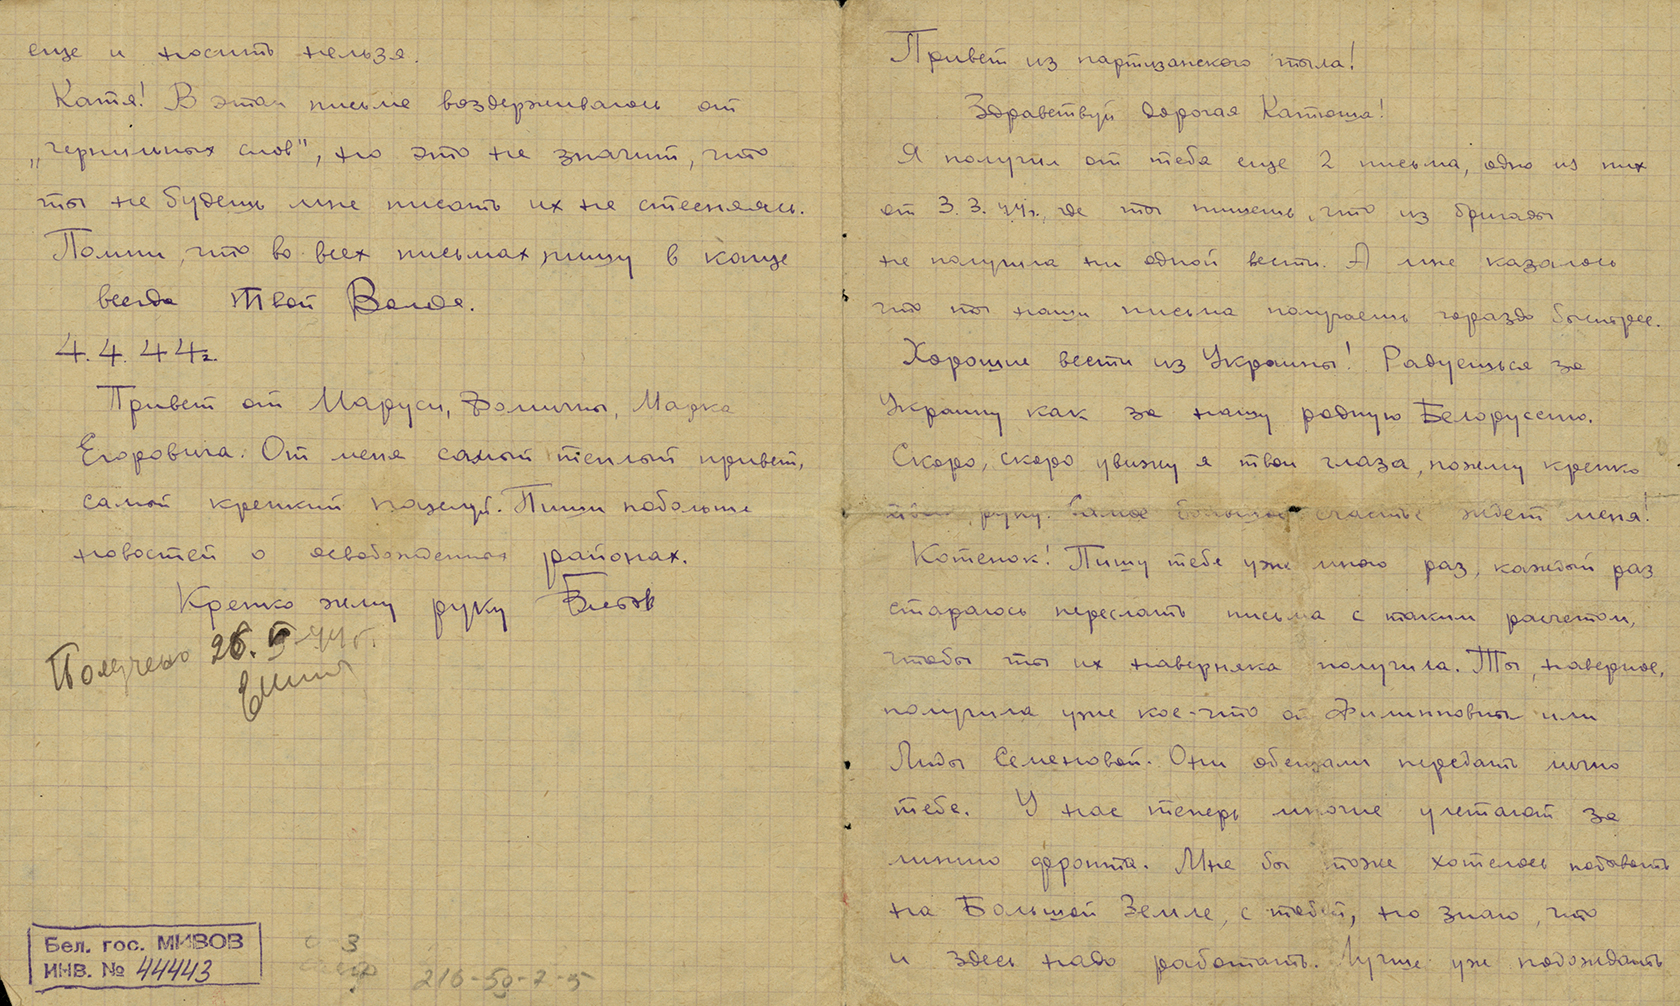 Привет из партизанского тыла!
Здравствуй дорогая Катюша!
Я получил от тебя еще 2 письма, одно из них
от 3.3.44г., где ты пишешь, что из бригады
не получила ни одной вести. А мне казалось
что ты наши письма получаешь гораздо быстрее.
Хорошие вести из Украины! Радуешься за
Украину как за нашу родную Белоруссию.
Скоро, скоро увижу я твои глаза, пожму крепко
твою руку. Самое большое счастье ждет меня!
Котенок! Пишу тебе уже много раз, каждый раз
стараюсь переслать письма с таким расчетом,
чтобы ты их наверняка получила. Ты, наверное,
получила уже кое-что от Филипповны или
Лиды Семеновой. Они обещали передать лично
тебе. У нас теперь многие улетают за
линию фронта. Мне бы тоже хотелось побывать
на Большой Земле, с тобой, но знаю, что
и здесь надо работать. Лучше уж подождать
еще и носить нельзя.
Катя! В этом письме воздерживаюсь от
„чернильных слов", но это не значит, что
ты не будешь мне писать их не стесняясь.
Помни, что во всех письмах пишу в конце
всегда Твой Володя.
4.4.44г.
Привет от Маруси, Фомичны, Марка
Егоровича. От меня самый теплый привет,
самый крепкий поцелуй. Пиши побольше
новостей о освобожденных районах.
Крепко жму руку
Получено 26. 44г.
Бел. гос. МИВОВ
ИНВ. № 44443
3
216-50-7-5